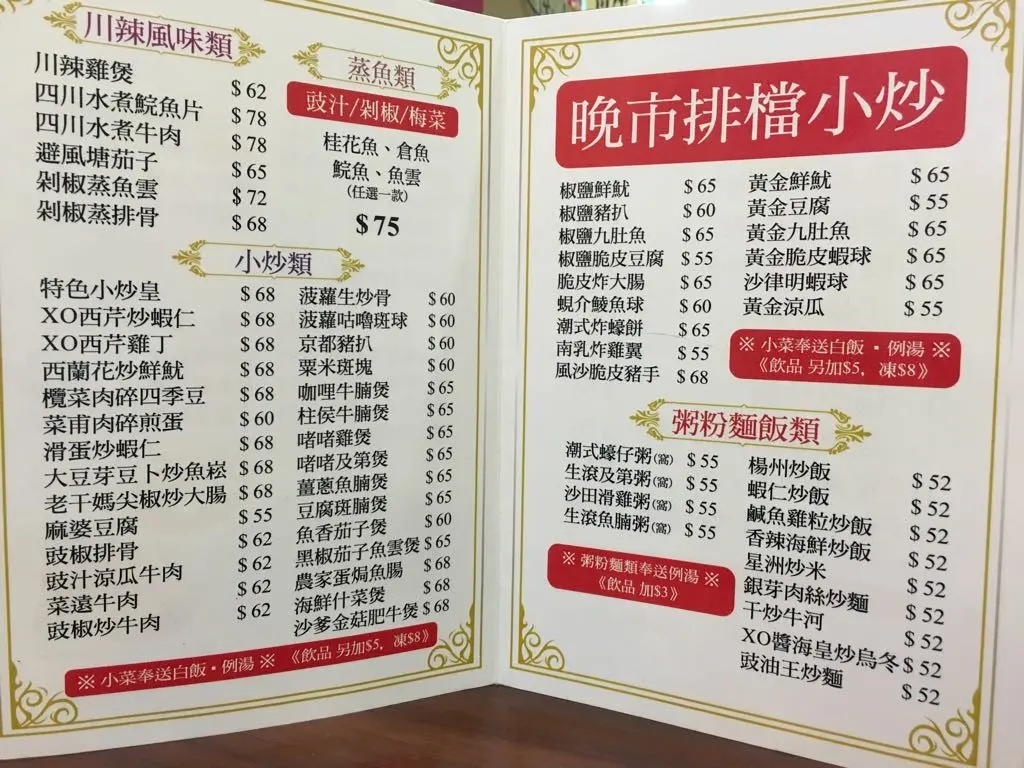 川辣風味類
川辣雞煲 $62
四川水煮鯇魚片 $78
四川水煮牛肉 $78
避風塘茄子 $65
剁椒蒸魚雲 $72
剁椒蒸排骨 $68
蒸魚類
豉汁/剁椒/梅菜
桂花魚、倉魚
鯇魚、魚雲
(任選一款)
$75
小炒類
特色小炒皇 $68
XO西芹炒蝦仁 $68
XO西芹雞丁 $68
西蘭花炒鮮魷 $68
欖菜肉碎四季豆 $68
菜甫肉碎煎蛋 $60
滑蛋炒蝦仁 $68
大豆芽豆卜炒魚崧 $68
老干媽尖椒炒大腸 $68
麻婆豆腐 $55
豉椒排骨 $62
豉汁涼瓜牛肉 $62
菜遠牛肉 $62
豉椒炒牛肉 $62
菠蘿生炒骨 $60
菠蘿咕嚕斑球 $60
京都豬扒 $60
粟米斑塊 $60
咖哩牛腩煲 $65
柱侯牛腩煲 $65
啫啫雞煲 $65
啫啫及第煲 $65
薑蔥魚腩煲 $65
豆腐斑腩煲 $65
魚香茄子煲 $60
黑椒茄子魚雲煲 $65
農家蛋焗魚腸 $68
海鮮什菜煲 $68
沙爹金菇肥牛煲 $68
※ 小菜奉送白飯・例湯 ※ 《飲品 另加$5, 凍$8》
晚市排檔小炒
椒鹽鮮魷 $65
椒鹽豬扒 $60
椒鹽九肚魚 $65
椒鹽脆皮豆腐 $55
脆皮炸大腸 $65
蜆介鯪魚球 $60
潮式炸蠔餅 $65
南乳炸雞翼 $55
風沙脆皮豬手 $68
黃金鮮魷 $65
黃金豆腐 $55
黃金九肚魚 $65
黃金脆皮蝦球 $65
沙律明蝦球 $65
黃金涼瓜 $55
※ 小菜奉送白飯・例湯 ※
《飲品 另加$5, 凍$8》
粥粉麵飯類
潮式蠔仔粥(窩) $55
生滾及第粥(窩) $55
沙田滑雞粥(窩) $55
生滾魚腩粥(窩) $55
※ 粥粉麵類奉送例湯 ※
《飲品 加$3》
楊州炒飯 $52
蝦仁炒飯 $52
鹹魚雞粒炒飯 $52
香辣海鮮炒飯 $52
星洲炒米 $52
銀芽肉絲炒麵 $52
干炒牛河 $52
XO醬海皇炒烏冬 $52
豉油王炒麵 $52